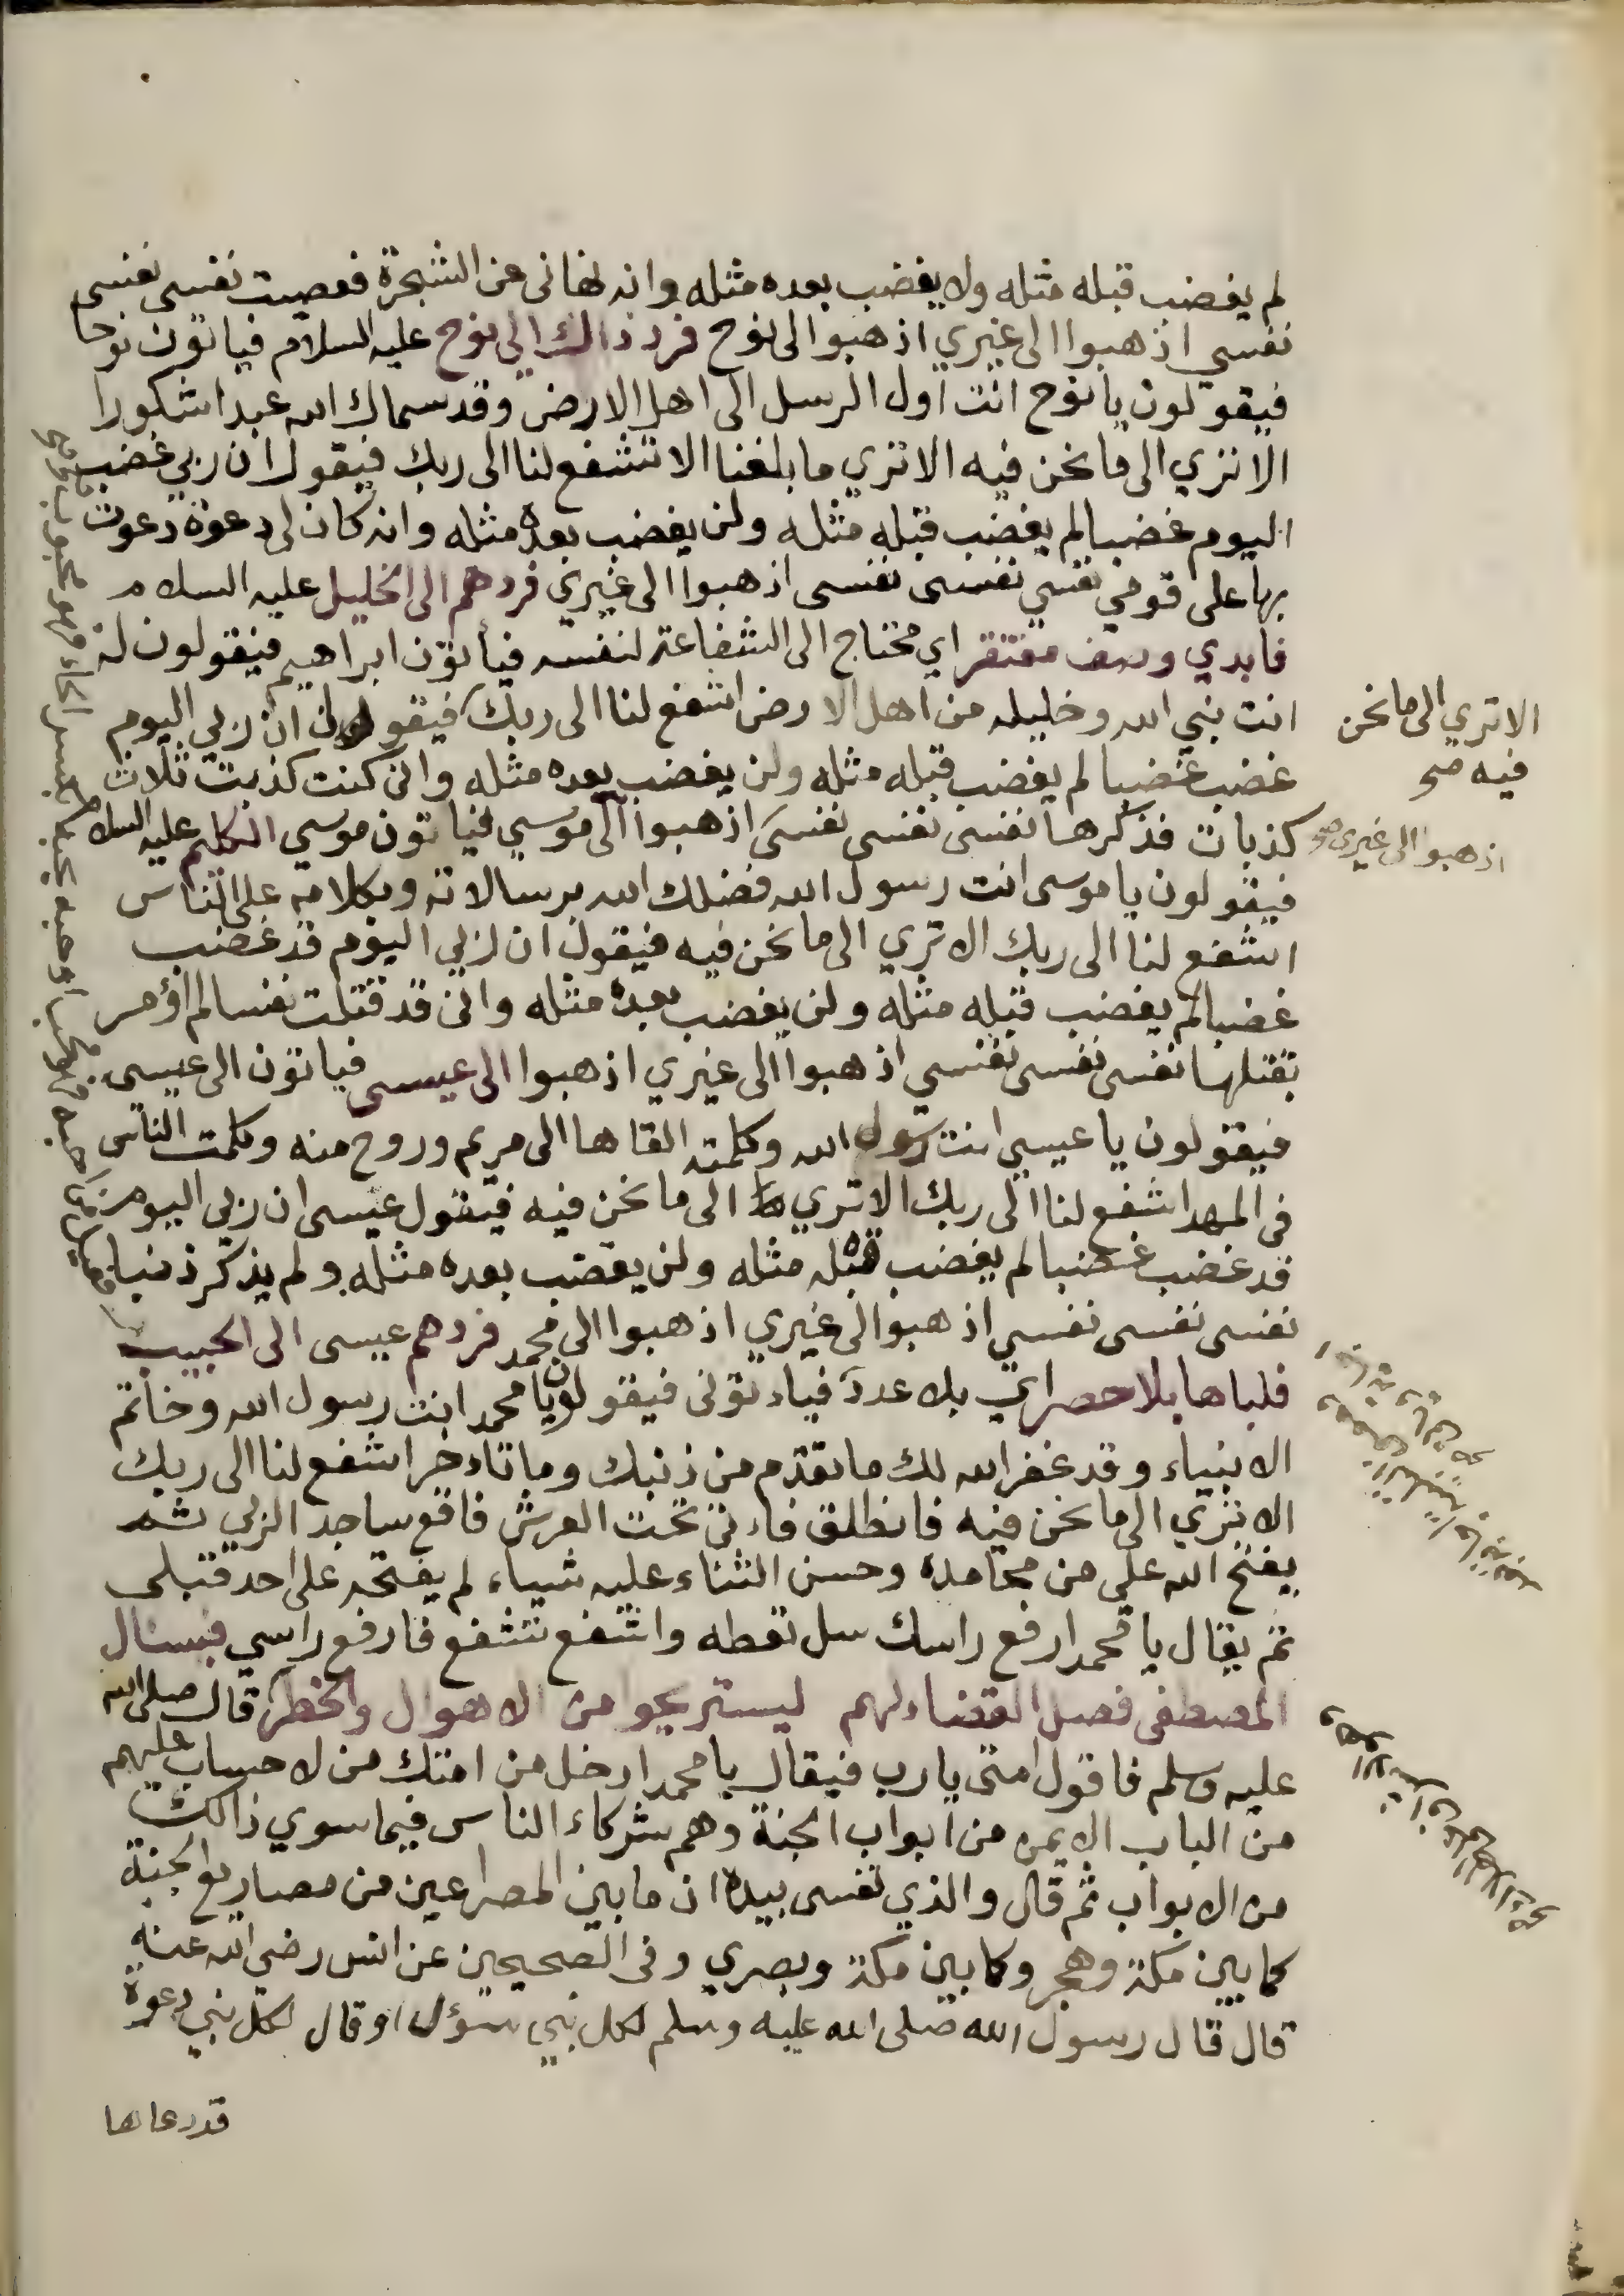 لم يغضب قبله مثله ولا يغضب بعده مثله وانه نهاني عن الشجرة فعصيت نفسي نفسي
نفسي اذهبوا الى غيري اذهبوا الى نوح فرد ذالك الى نوح عليه السلام فياتون نوحا
فيقولون يا نوح انت اول الرسل الى اهل الارض وقد سماك الله عبدا شكورا
الا تري الى ما نحن فيه الا تري ما بلغنا الا تشفع لنا الى ربك فيقول ان ربي غضب
اليوم غضبا لم يغضب قبله مثله ولن يغضب بعده مثله وانه كان لي دعوة دعوت
بها على قومي نفسي نفسي نفسي اذهبوا الى غيري فردهم الى الخليل عليه السلام
فابدي وصف مفتقر اي محتاج الى الشفاعة لنفسه فيأتون ابراهيم فيقولون له
انت نبي الله وخليله من اهل الارض اشفع لنا الى ربك فيقول ان ربي اليوم
غضب غضبا لم يغضب قبله مثله ولن يغضب بعده مثله واني كنت كذبت ثلاث
كذبات فذكرها نفسي نفسي نفسي اذهبوا الى موسي فياتون موسي الكليم عليه السلام
فيقولون يا موسى انت رسول الله فضلك الله برسالاته وبكلامه على الناس
اشفع لنا الى ربك الا تري الى ما نحن فيه فيقول ان ربي اليوم قد غضب
غضبا لم يغضب قبله مثله ولن يغضب بعده مثله واني قد قتلت نفسا لم اؤمر
بقتلها نفسي نفسي نفسي اذهبوا الى غيري اذهبوا الى عيسى فياتون الى عيسي
فيقولون يا عيسي انت رسول الله وكلمته القاها الى مريم وروح منه وكلمت الناس
في المهد اشفع لنا الى ربك الا تري الى ما نحن فيه فيقول عيسى ان ربي اليوم
قد غضب غضبا لم يغضب قبله مثله ولن يغضب بعده مثله ولم يذكر ذنبا
نفسي نفسي نفسي اذهبوا الى غيري اذهبوا الى محمد فردهم عيسى الى الحبيب
فلباها بلا حصر اي بلا عدد فياءتوني فيقولون يا محمد انت رسول الله وخاتم
الانبياء وقد غفر الله لك ما تقدم من ذنبك وما تاءخر اشفع لنا الى ربك
الا تري الى ما نحن فيه فانطلق فاءتي تحت العرش فاقع ساجدا لربي ثم
يفتح الله علي من محامده وحسن الثناء عليه شيياء لم يفتحه على احد قبلي
ثم يقال يا محمد ارفع راسك سل تعطه واشفع تشفع فارفع راسي فيسئال
المصطفى فصل القضاء لهم ليستريحو من الاهوال والخطر قال صلى الله
عليه وسلم فاقول امتي يارب فيقال يا محمد ادخل من امتك من لا حساب عليهم
من الباب الايمن من ابواب الجنة وهم شركاء الناس فيما سوي ذالك
من الابواب ثم قال والذي نفسي بيده ان ما بين المصراعين من مصاريع الجنة
كما بين مكة وهجر وكما بين مكة وبصري وفي الصحيحين عن انس رضي الله عنه
قال قال رسول الله صلى الله عليه وسلم لكل نبي سؤل او قال لكل نبي دعوة
قد دعاها
الا تري الى ما نحن
فيه صح
اذهبوا الى غيري صح